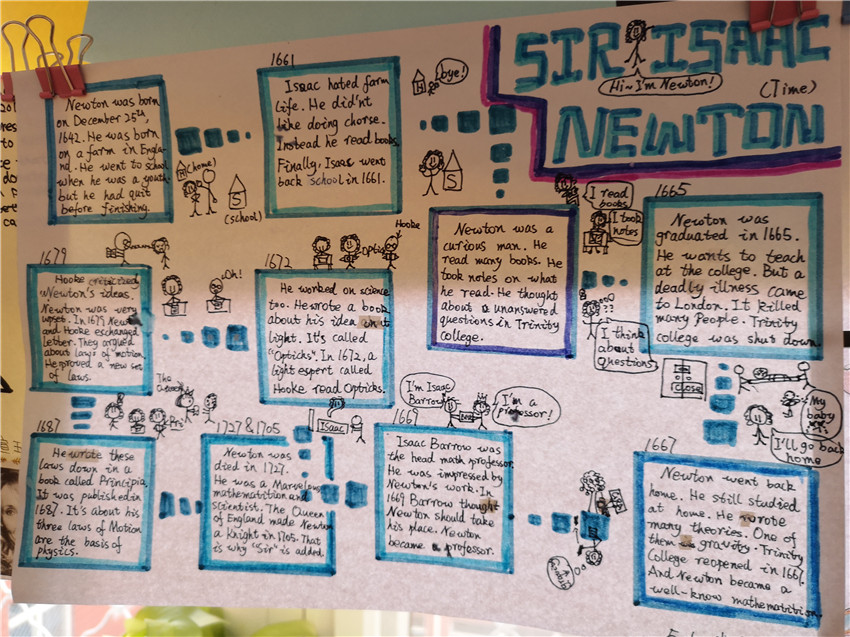 SIR ISAAC
NEWTON
(Time)
Hi~ I'm Newton!
Newton was born
on December 25th,
1642. He was born
on a farm in Engla-
nd. He went to school
when he was a youth.
but he had quit
before finishing.
(home)
(school)
1661
Isaac hated farm
life. He did'nt
like doing chorse.
Instead he read books.
Finally, Isaac went
back school in 1661.
bye!
S
S
Newton was a
curious man. He
read many books. He
took notes on what
he read. He thought
about a unanswered
questions in Trinity
college.
I read
books
I took
notes
I think
about
questions
1665
Newton was
graduated in 1665.
He wants to teach
at the college. But a
deadly illness came
to London. It killed
many People. Trinity
college was shut down.
CLOSE
My
baby
I'll go back
home
1667
Newton went back
home. He still studied
at home. He wrote
many theories. One of
them is gravity. Trinity
College reopened in 1667.
And Newton became a
well-know mathematition.
1669
I'm Isaac
Barrow
I'm a
professor!
Isaac Barrow was
the head math professor.
He was impressed by
Newton's work. In
1669 Barrow thought
Newton should take
his place. Newton
became a professor.
1672
Optis
Hooke
He worked on science
too. He wrote a book
about his idea in it
light. It's called
"Opticks". In 1672, a
light expert called
Hooke read Opticks.
Oh!
1679
Hooke critized
Newton's ideas.
Newton was very
upset. In 1679 New
and Hooke exchanged
letter. They argued
about laws of motion.
He proved a new set
of laws.
1687
He wrote these
laws down in a
book called Principia.
It was published in
1687. It's about his
three laws of Motion
are the basis of
physics.
The
Pri
1727 & 1705
Isaac
Newton was
died in 1727.
He was a Marvelous
mathematition and
scientist. The Queen
of England made Newton
a knight in 1705. That
is why "Sir" is added.